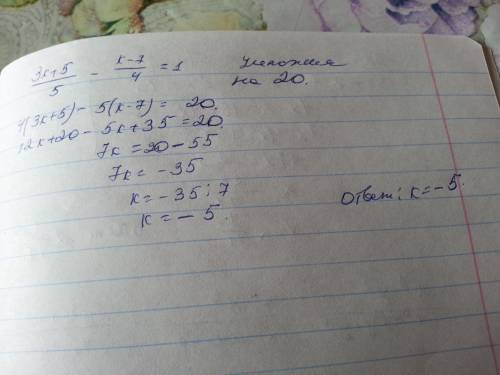 (3x+5)/5 - (x-7)/4 = 1 умножим
на 20.
4(3x+5) - 5(x-7) = 20.
12x+20 - 5x+35 = 20.
7x = 20 - 55
7x = -35
x = -35 : 7
x = -5.
Ответ: x = -5.